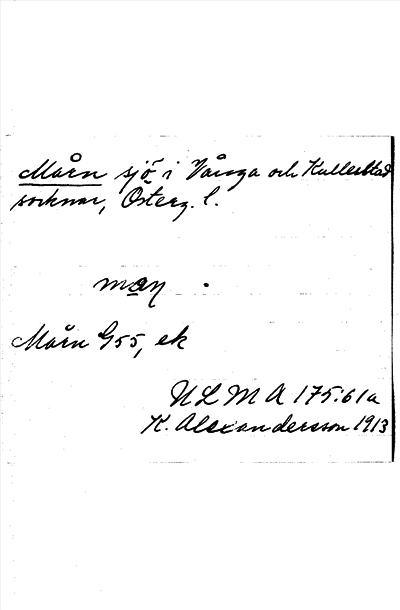 Mårn sjö i Vånga och Kullerstad
socknar, Österg. l.
Mårn G55, ek
ULMA 175:61a
K. Alexandersson 1913